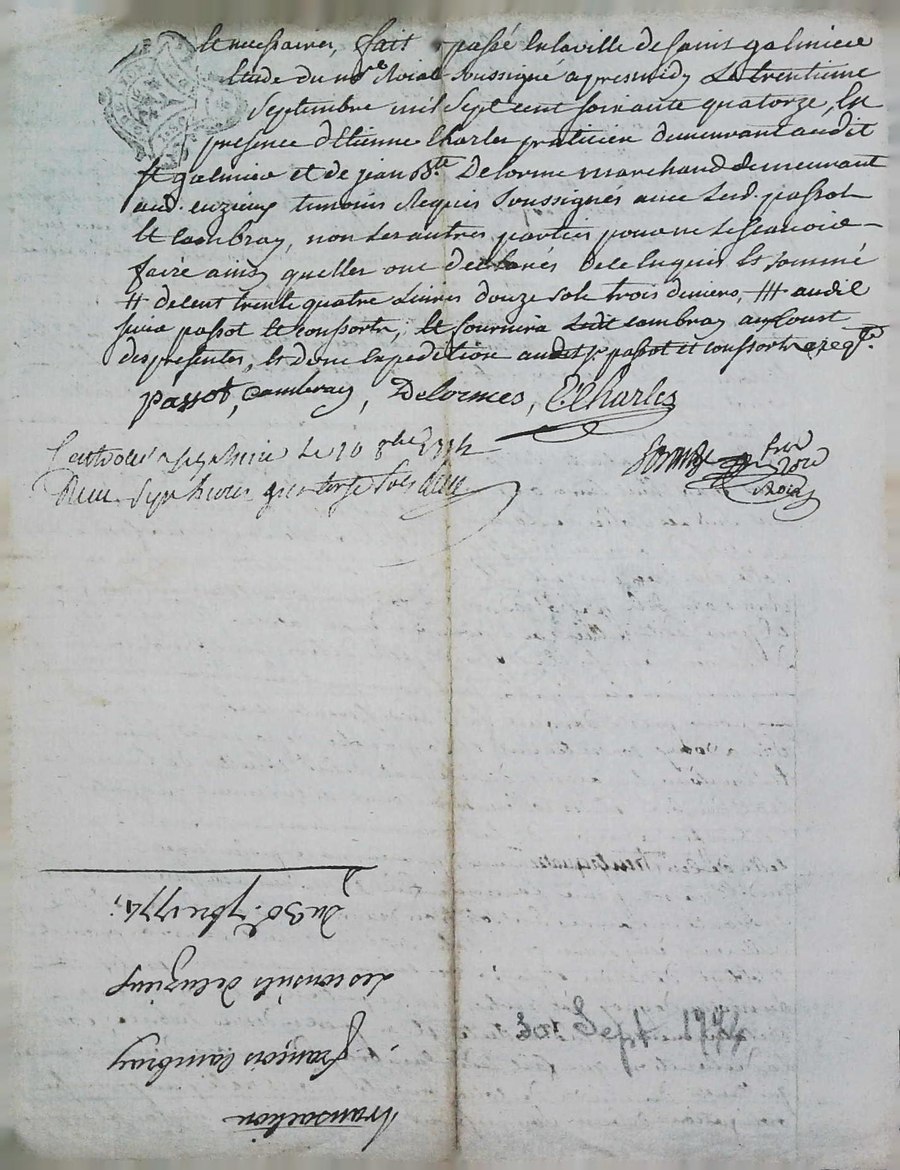 et necessaires, fait & passé en la ville de saint galmier
étude du nore Roial soussigné apres midy Le trentieme
Septembre mil Sept cent soixante quatorze, En
presence d'Etienne Charles praticien demeurant audit
st galmier et de jean Bte Delorme marchand demeurant
aud. cuzieux temoins Requis Soussignés avec Led. passot
et cambray, non Les autres parties pour ne le scavoir
faire ainsy quelles ont declarés de ce Enquis Et sommé
# de cent trente quatre Livres douze sols trois deniers, ## audit
sieur passot et consorts, et fournira Ledit cambray au Coust
des presentes, Et d'une Expedition audit sr passot et conssorts
passot, cambray, Delormes, E Charles
Controllé a st galmier Le 10 8bre 1774
Reçu Sept livres
Transaction
françois cambray
Les consuls de cuzieux
du 30e 7bre 1774;
30 Sept 1774